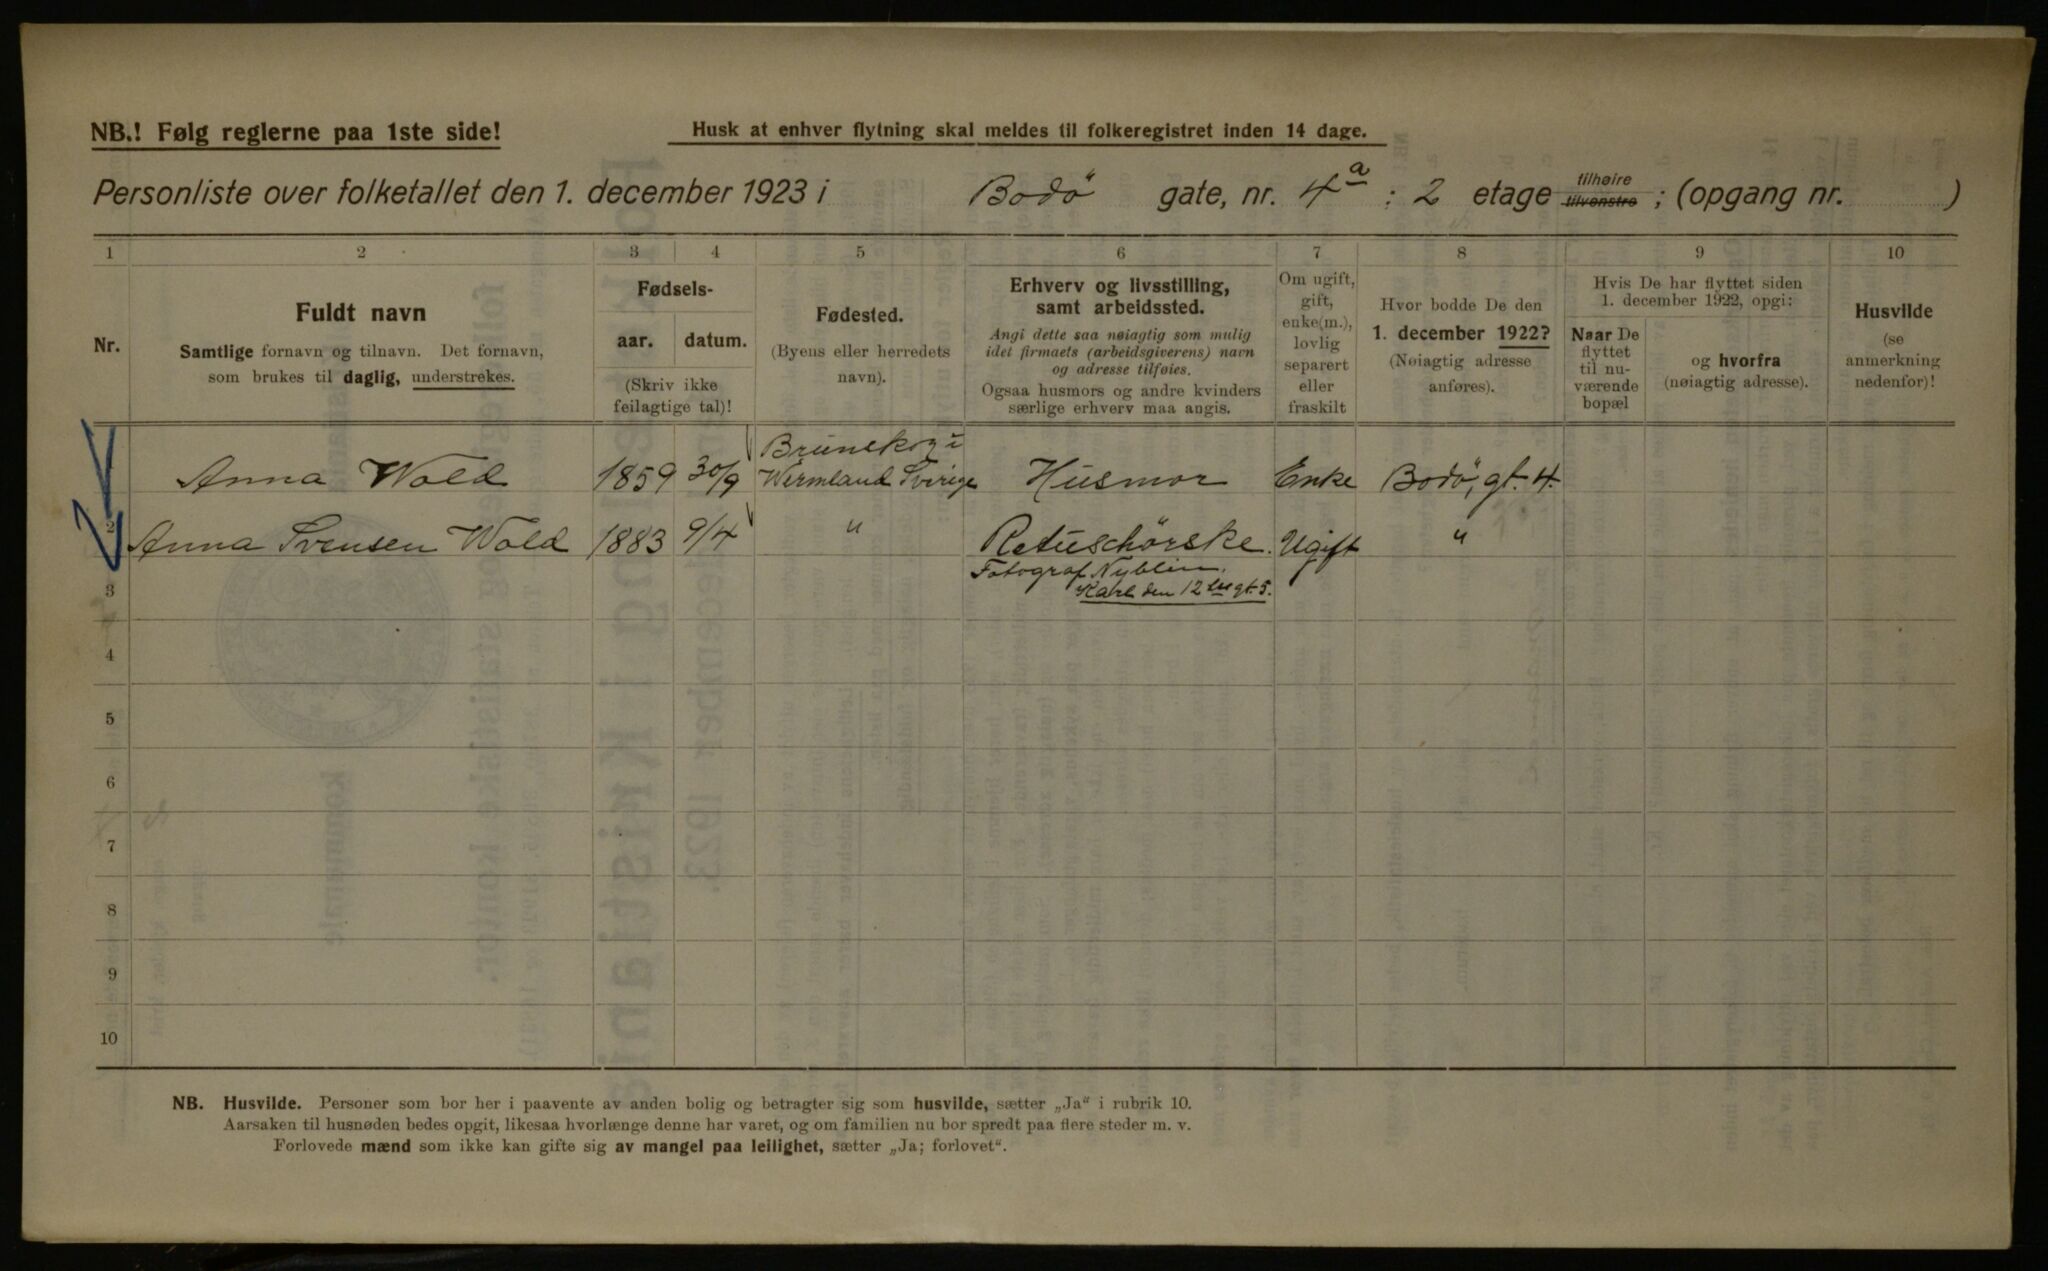 NB.! Følg reglerne paa 1ste side!
Husk at enhver flytning skal meldes til folkeregistret inden 14 dage.
Personliste over folketallet den 1. december 1923 i Bodö gate, nr. 4a : 2 etage tilhøire tilvenstre ; (opgang nr. )
1 2 3 4 5 6 7 8 9 10
Nr.
Fuldt navn
Samtlige fornavn og tilnavn. Det fornavn,
som brukes til daglig, understrekes.
Fødsels-
aar. datum.
(Skriv ikke
feilagtige tal)!
Fødested.
(Byens eller herredets
navn).
Erhverv og livsstilling,
samt arbeidssted.
Angi dette saa nøiagtig som mulig
idet firmaets (arbeidsgiverens) navn
og adresse tilføies.
Ogsaa husmors og andre kvinders
særlige erhverv maa angis.
Om ugift,
gift,
enke(m.),
lovlig
separert
eller
fraskilt
Hvor bodde De den
1. december 1922?
(Nøiagtig adresse
anføres).
Hvis De har flyttet siden
1. december 1922, opgi:
Naar De
flyttet
til nu-
værende
bopæl
og hvorfra
(nøiagtig adresse).
Husvilde
(se
anmerkning
nedenfor)!
Brunskog i
Anna Wold 1859 30/9 Wermland Sverige Husmor Enke Bodö, gt. 4.
2 Anna Svensen Wold 1883 9/4 " Retuschörske. Ugift "
Fotograf Nyblin.
3 Karl den 12 tes gt. 5.
4
5
6
7
8
9
10
NB. Husvilde. Personer som bor her i paavente av anden bolig og betragter sig som husvilde, sætter „Ja“ i rubrik 10.
Aarsaken til husnøden bedes opgit, likesaa hvorlænge denne har varet, og om familien nu bor spredt paa flere steder m. v.
Forlovede mænd som ikke kan gifte sig av mangel paa leilighet, sætter „Ja; forlovet“.